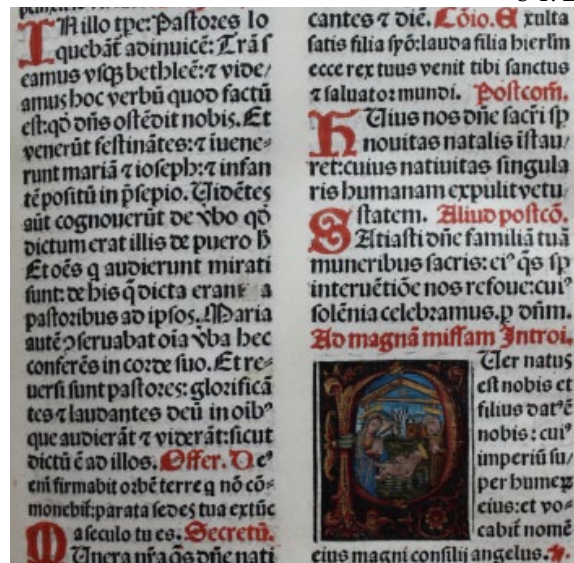 IN illo tpe: Pastores lo
quebāt adinuicē: Trās
eamus vsqꝫ bethleē: ⁊ vide/
amus hoc verbū quod factū
est: qd̄ dn̄s ostēdit nobis. Et
venerūt festinātes: ⁊ īuene-
runt mariā ⁊ ioseph: ⁊ infan
tē positū in p̄sepio. Uidētes
aūt cognouerūt de v̄bo qd̄
dictum erat illis de puero h̄
Et oēs q audierunt mirati
sunt: de his q̄ dicta erant a
pastoribus ad ipsos. Maria
autē ꝯseruabat oīa v̄ba hec
conferēs in corde suo. Et re-
uersi sunt pastores: glorificā
tes ⁊ laudantes deū in oībꝰ
que audierāt ⁊ viderāt: sicut
dictū ē ad illos. Offer. Deꝰ
em̄ firmabit orbē terre q nō cō-
monebit̄: parata sedes tua extūc
a seculo tu es. Secretū.
Munera nr̄a q̄s dn̄e nati
cantes ⁊ diē. Cōio. Exulta
satis filia syō: lauda filia hierlm̄
ecce rex tuus venit tibi sanctus
⁊ saluator mundi. Postcom̄.
HUius nos dn̄e sacri sp
nouitas natalis īstau/
ret: cuius natiuitas singula
ris humanam expulit vetu/
statem. Aliud postcō.
SAtiasti dn̄e familiā tuā
muneribus sacris: eiꝰ q̄s sp
interuētiōe nos refoue: cuiꝰ
solēnia celebramus. p dn̄m.
Ad magnā missam Introi.
PUer natus
est nobis et
filius datꝰ ē
nobis: cuiꝰ
imperiū su/
per humeꝝ
eius: et vo-
cabit̄ nomē
eius magni consilij angelus.